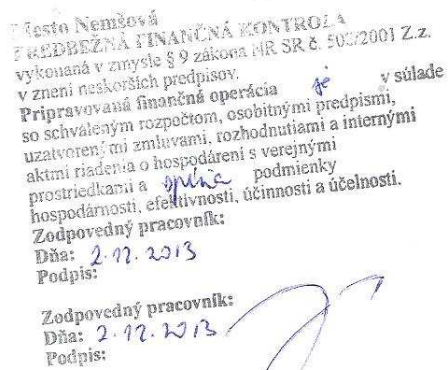 Mesto Nemšová
PREDBEŽNÁ FINANČNÁ KONTROLA
vykonaná v zmysle § 9 zákona NR SR č. 502/2001 Z.z.
v znení neskorších predpisov.
Pripravovaná finančná operácia je v súlade
so schváleným rozpočtom, osobitnými predpismi,
uzatvorenými zmluvami, rozhodnutiami a internými
aktmi riadenia o hospodárení s verejnými
prostriedkami a spĺňa podmienky
hospodárnosti, efektívnosti, účinnosti a účelnosti.
Zodpovedný pracovník:
Dňa: 2.12.2013
Podpis:
Zodpovedný pracovník:
Dňa: 2.12.2013
Podpis: